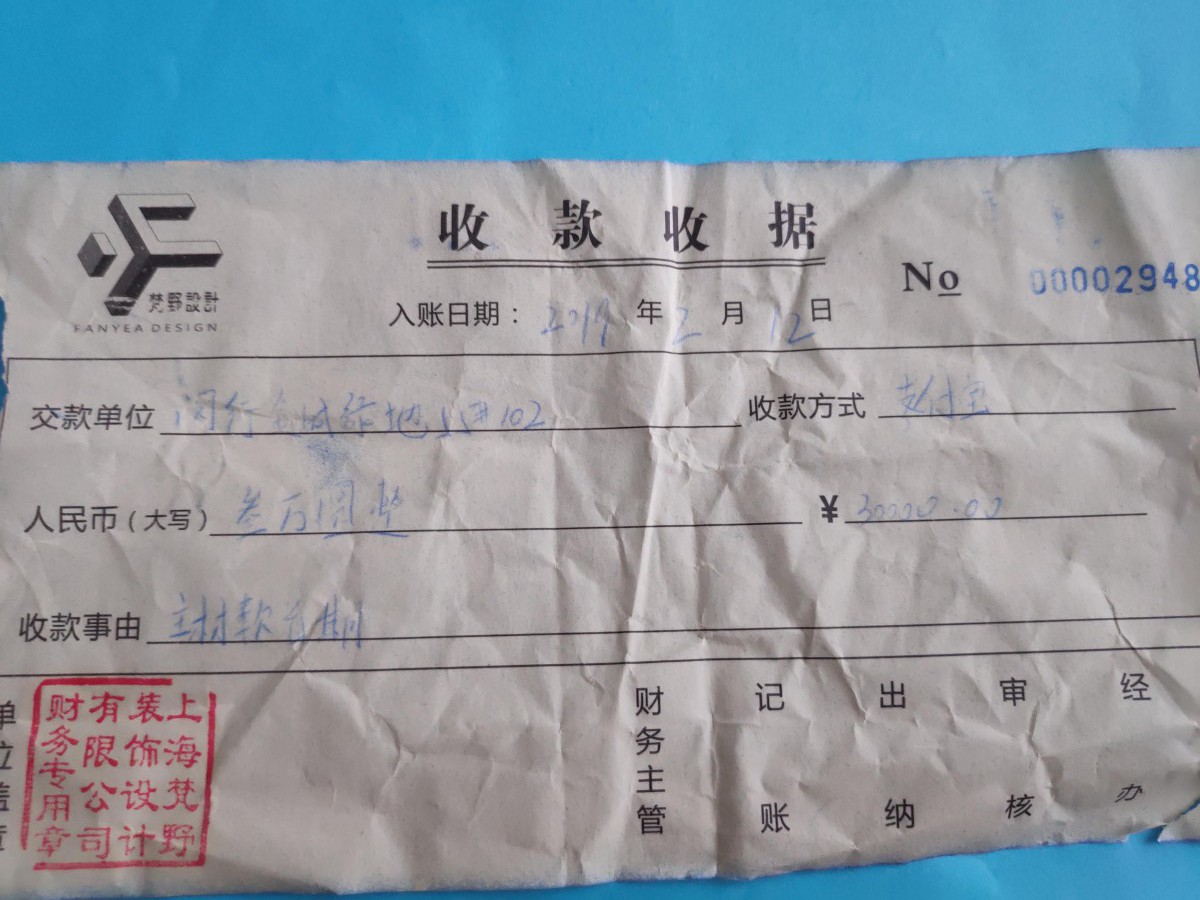 收款收据
梵野設計
FANYEA DESIGN
No 00002948
入账日期：2019年2月12日
交款单位 闵行 绿地 102
收款方式 支付宝
人民币（大写）叁万圆整
¥ 30000.00
收款事由 主材款 期
单位盖章
上海梵野装饰设计有限公司财务专用章
财务主管
记账
出纳
审核
经办